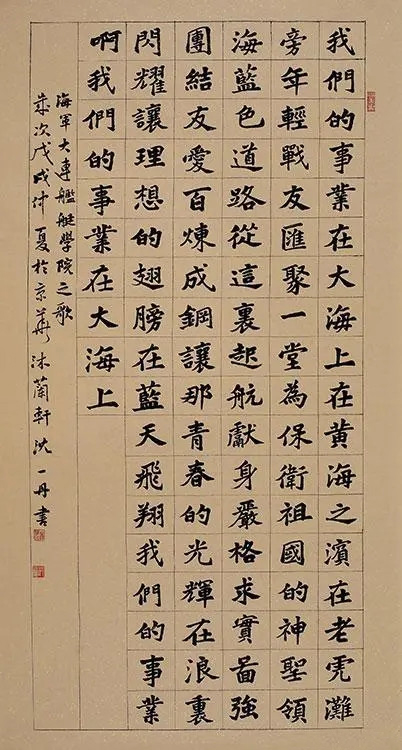 我們的事業在大海上在黄海之濱在老虎灘
旁年輕戰友匯聚一堂為保衛祖國的神聖領
海藍色道路從這裏起航獻身嚴格求實啚強
團結友愛百煉成鋼讓那青春的光輝在浪裏
閃耀讓理想的翅膀在藍天飛翔我們的事業
啊我們的事業在大海上
海軍大連艦艇學院之歌
歲次戊戌仲夏於京華沐蘭軒沈一丹書